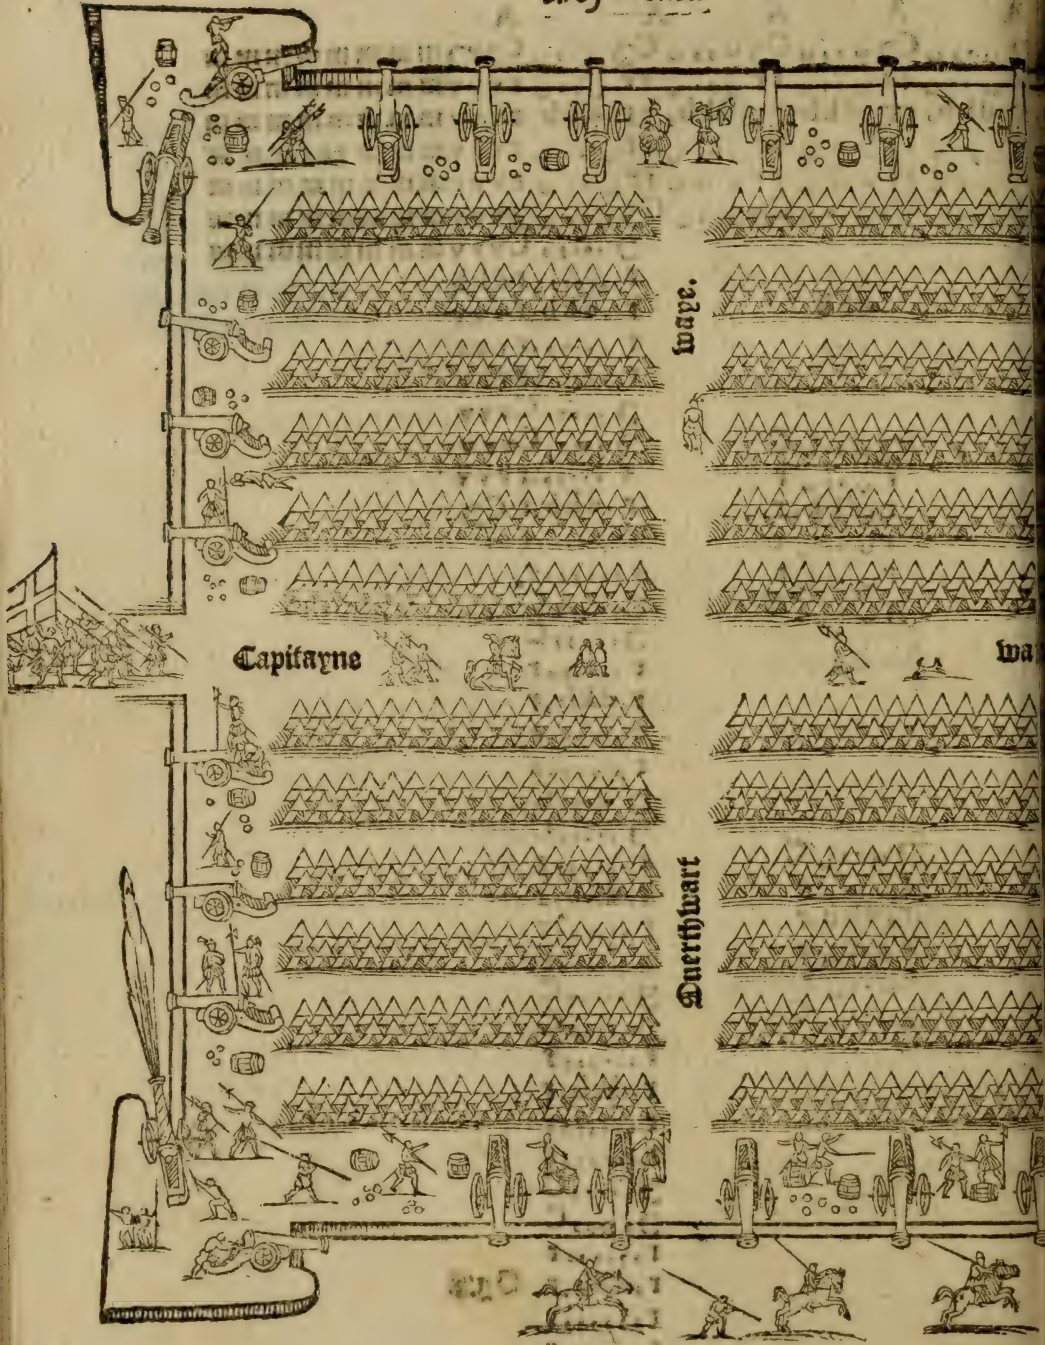 waye.
Capitayne wa
Ouerthwart